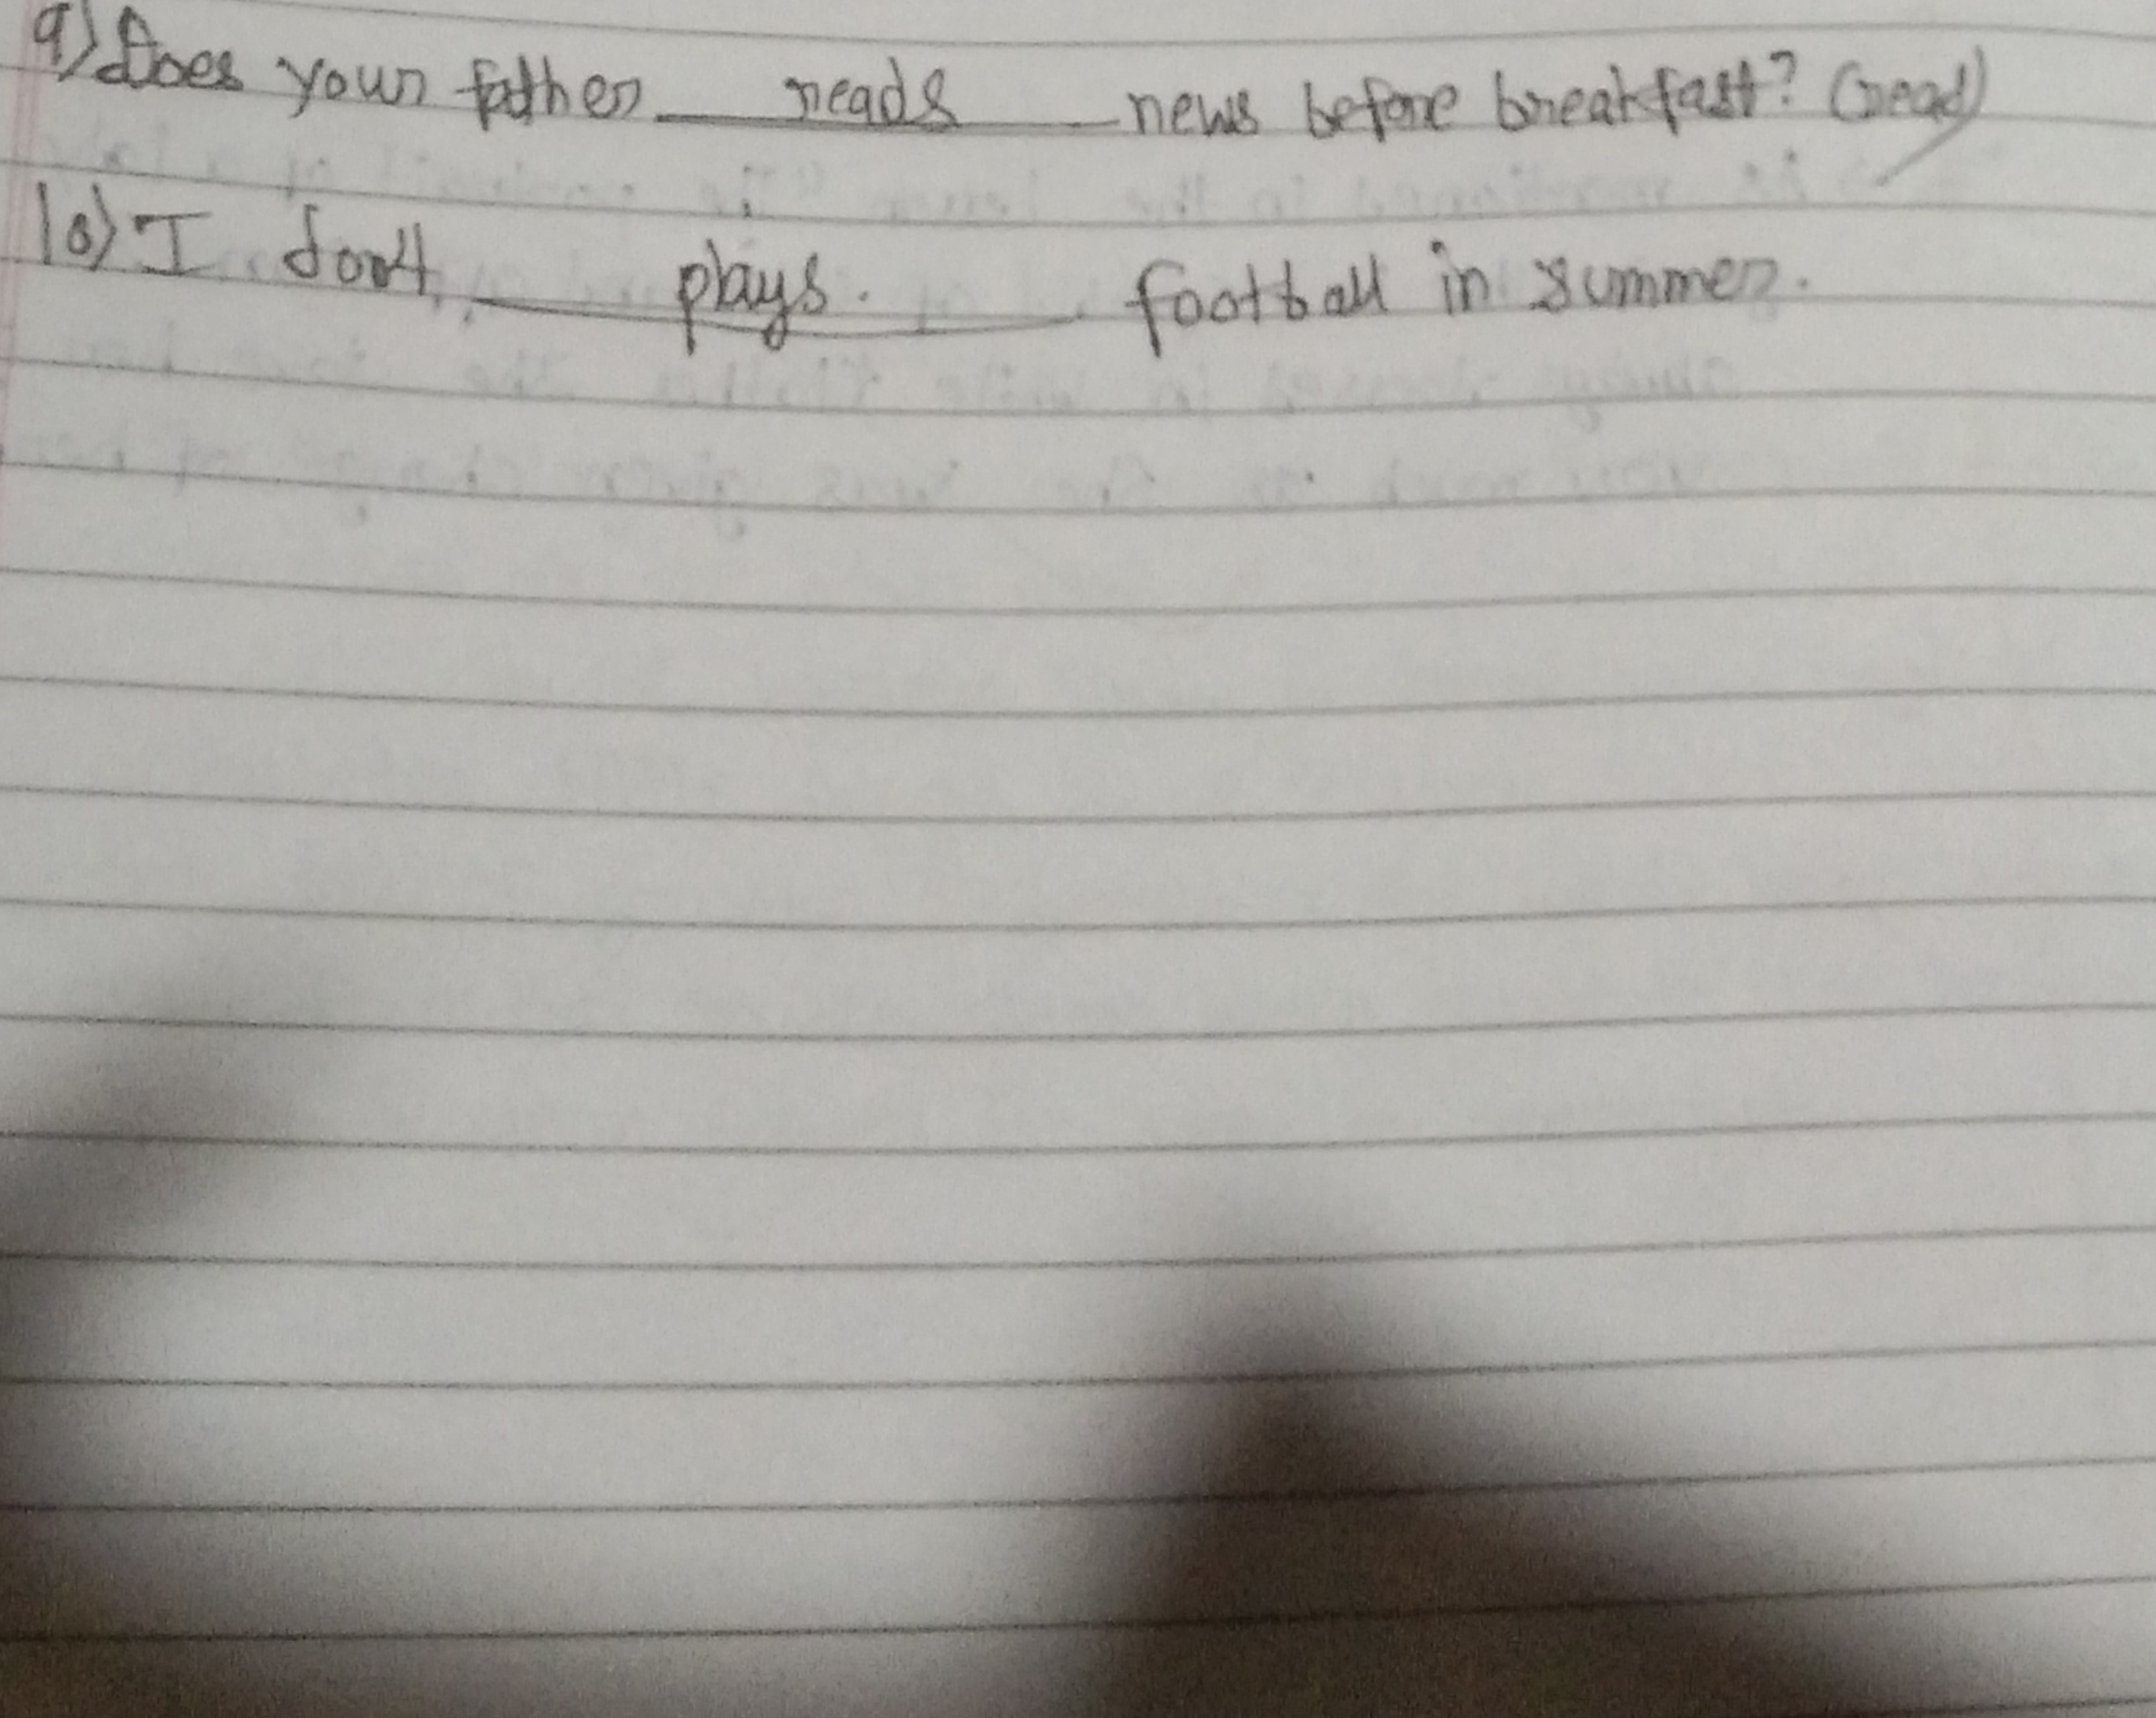 9) Does your father reads news before breakfast? (read)
10) I don't plays. football in summer.